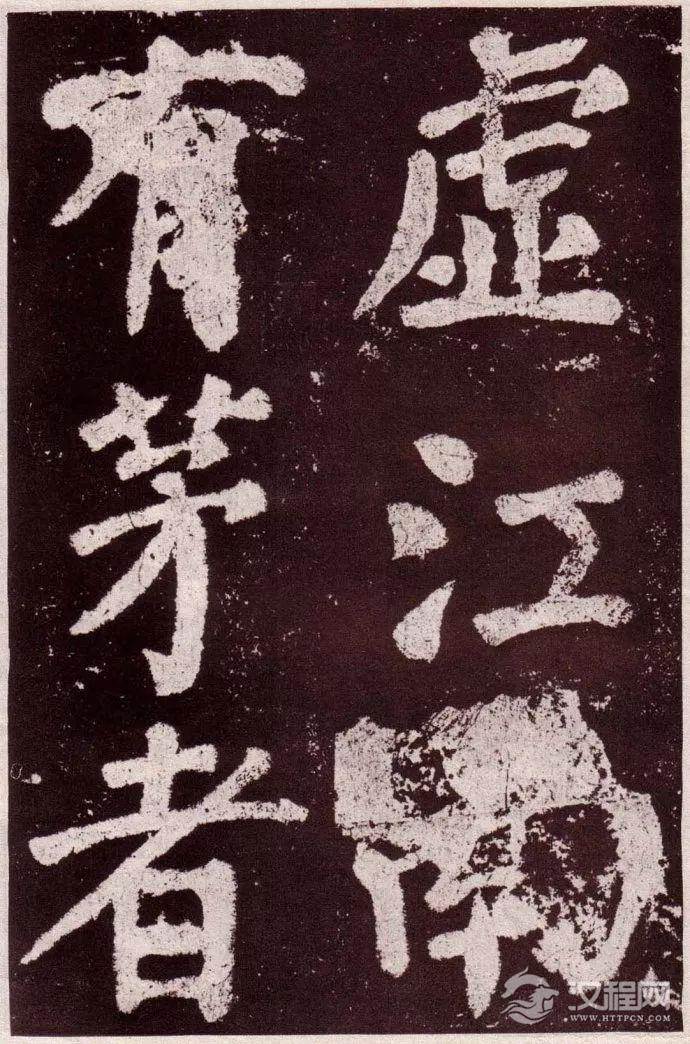 虚江南
有茅者
汉程网
WWW.HTTPCN.COM